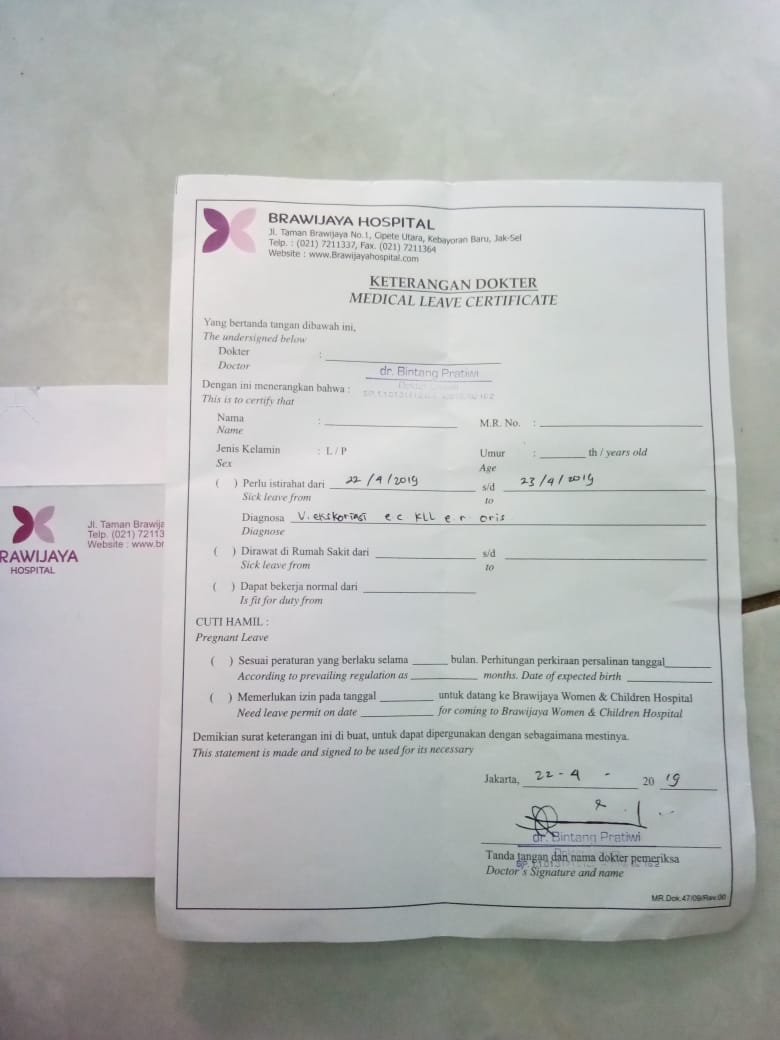 BRAWIJAYA HOSPITAL
Jl. Taman Brawijaya No.1, Cipete Utara, Kebayoran Baru, Jak-Sel
Telp. : (021) 7211337, Fax. (021) 7211364
Website : www.Brawijayahospital.com
KETERANGAN DOKTER
MEDICAL LEAVE CERTIFICATE
Yang bertanda tangan dibawah ini,
The undersigned below
Dokter :
Doctor
dr. Bintang Pratiwi
Dengan ini menerangkan bahwa :
This is to certify that
Nama : M.R. No. :
Name
Jenis Kelamin : L / P Umur : th / years old
Sex Age
( ) Perlu istirahat dari 22/4/2019 s/d 23/4/2019
Sick leave from to
Diagnosa V. ekskoriasi e.c KLL e r. oris
Diagnose
( ) Dirawat di Rumah Sakit dari s/d
Sick leave from to
( ) Dapat bekerja normal dari
Is fit for duty from
CUTI HAMIL :
Pregnant Leave
( ) Sesuai peraturan yang berlaku selama bulan. Perhitungan perkiraan persalinan tanggal
According to prevailing regulation as months. Date of expected birth
( ) Memerlukan izin pada tanggal untuk datang ke Brawijaya Women & Children Hospital
Need leave permit on date for coming to Brawijaya Women & Children Hospital
Demikian surat keterangan ini di buat, untuk dapat dipergunakan dengan sebagaimana mestinya.
This statement is made and signed to be used for its necessary
Jakarta, 22-4 - 20 19
dr. Bintang Pratiwi
Tanda tangan dan nama dokter pemeriksa
Doctor's Signature and name
MR.Dok.47/09/Rev.00
RAWIJAYA
HOSPITAL
Jl. Taman Brawija
Telp. (021) 72113
Website : www.br